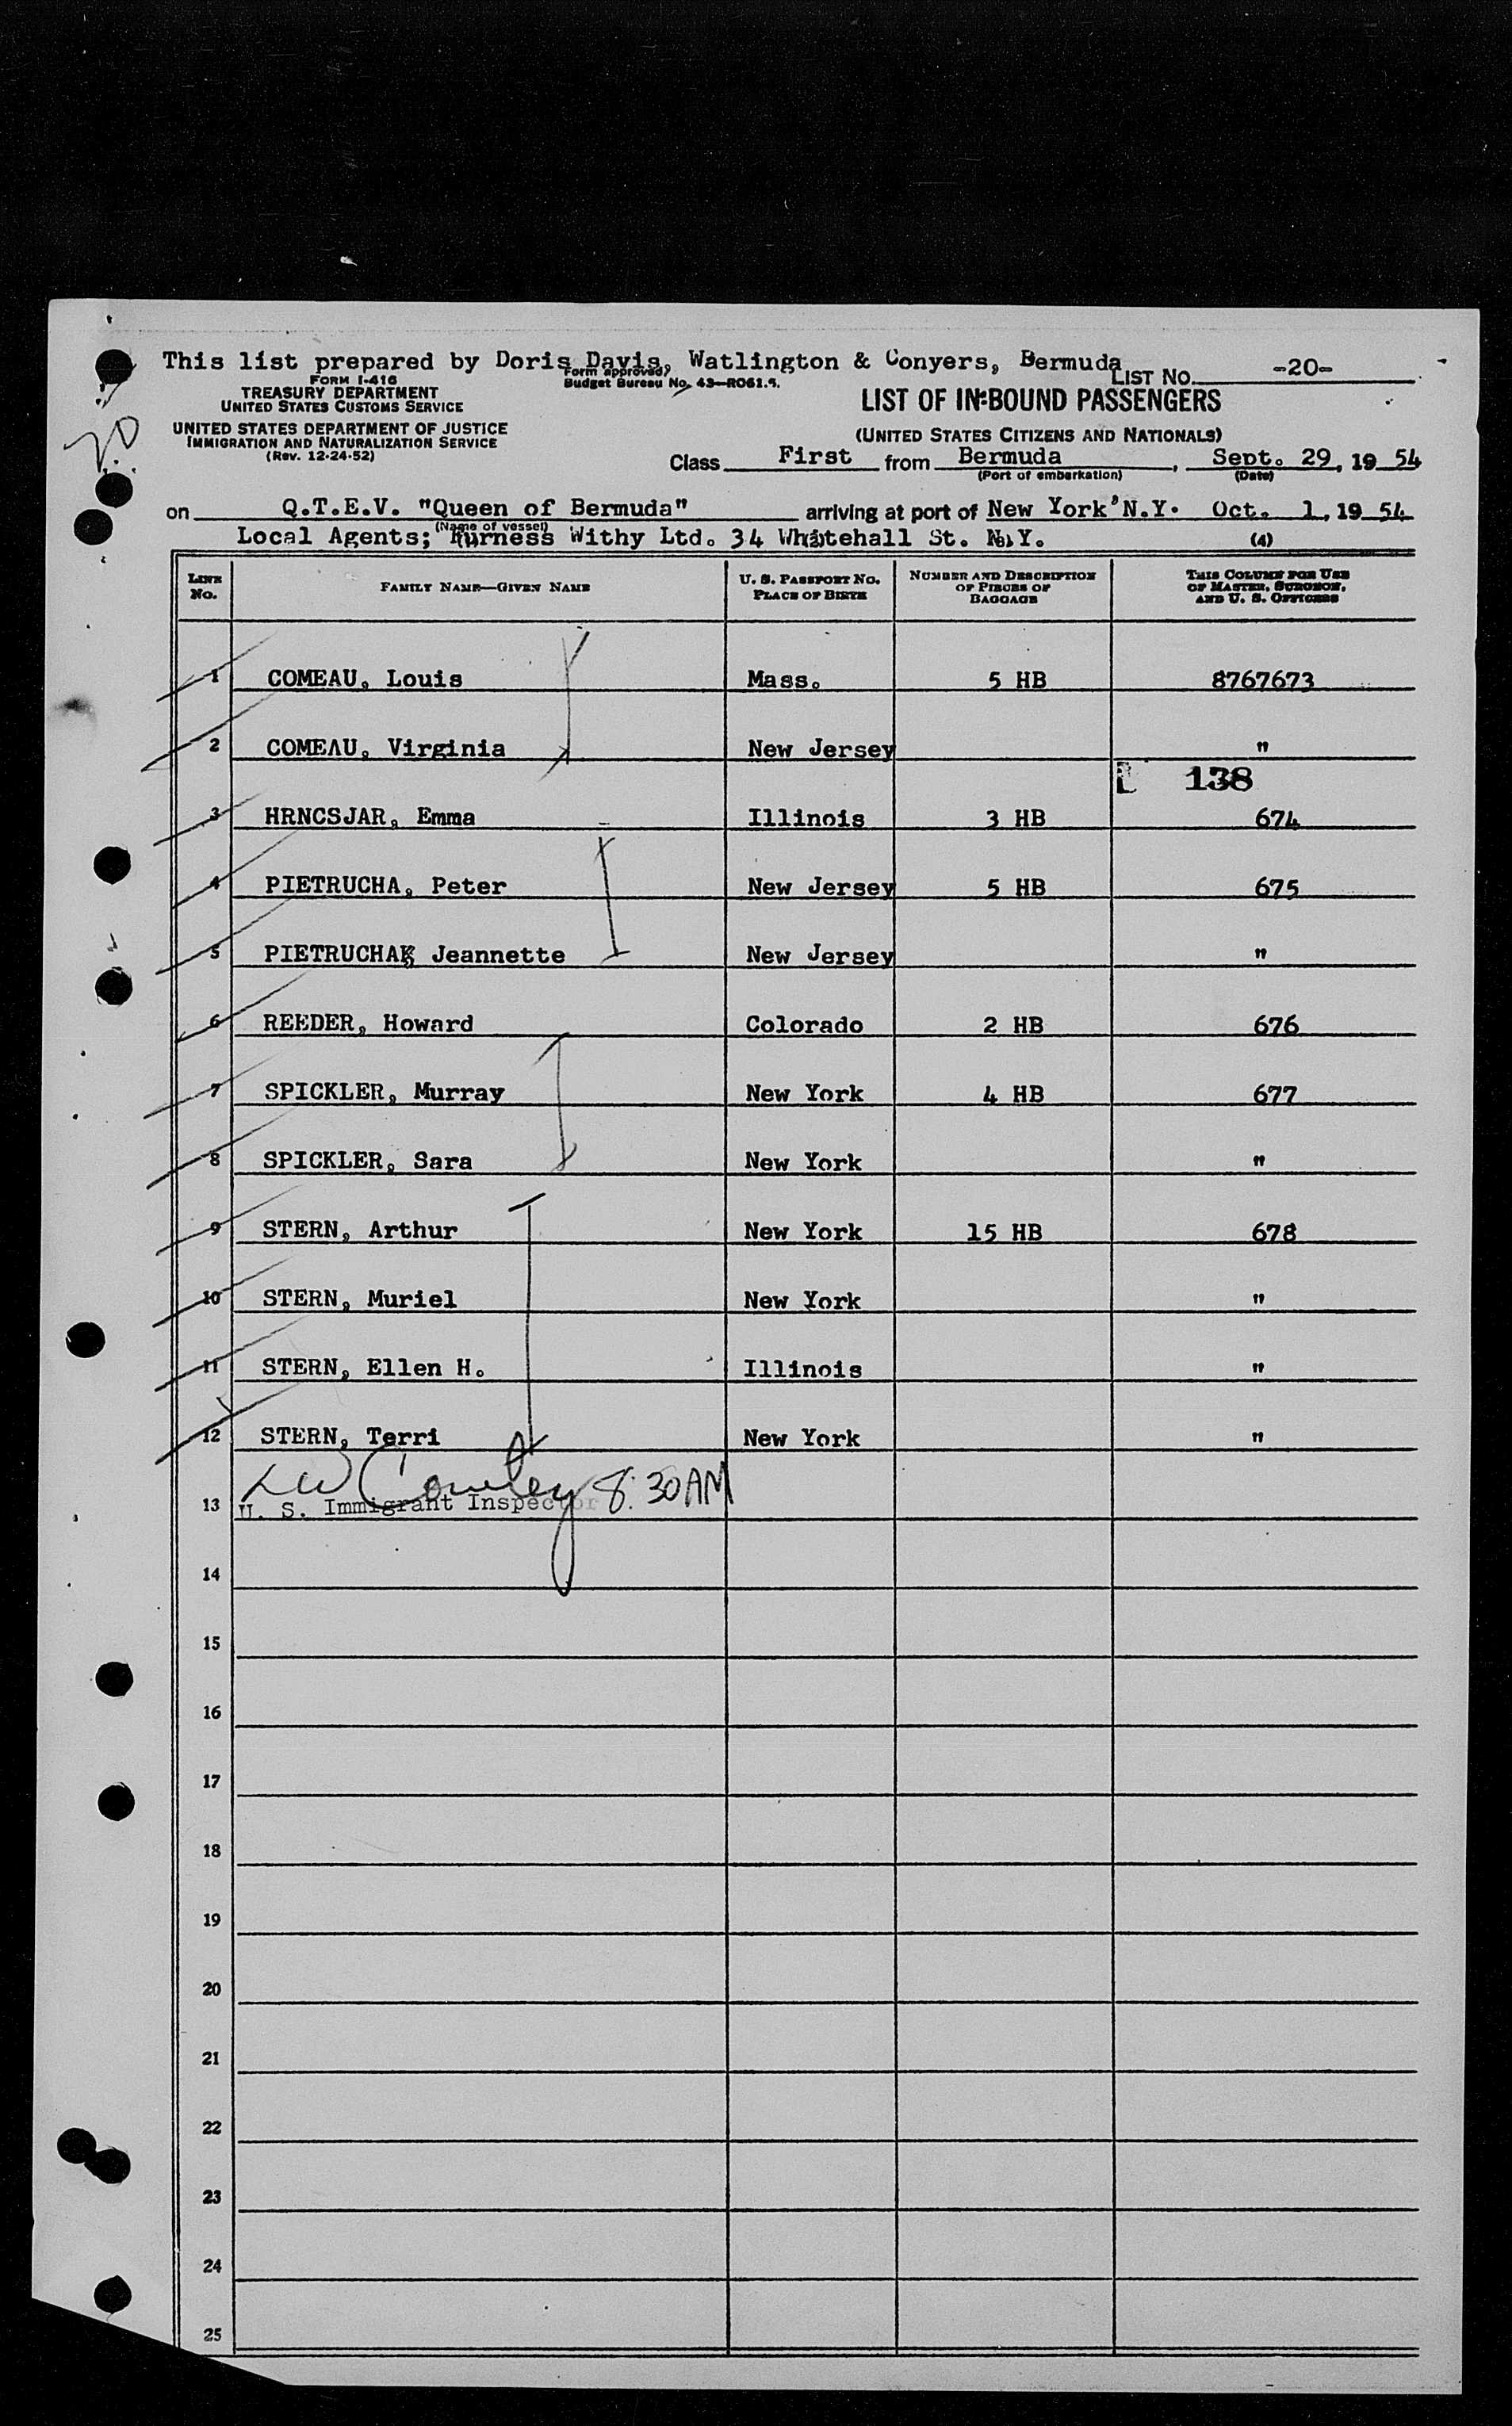 This list prepared by Doris Davis, Watlington & Conyers, Bermuda
LIST NO. -20-
FORM I-416
TREASURY DEPARTMENT
UNITED STATES CUSTOMS SERVICE
Form approved,
Budget Bureau No. 43-R061.5.
LIST OF IN-BOUND PASSENGERS
UNITED STATES DEPARTMENT OF JUSTICE
IMMIGRATION AND NATURALIZATION SERVICE
(Rev. 12-24-52)
(UNITED STATES CITIZENS AND NATIONALS)
Class First from Bermuda, Sept. 29, 19 54
(Port of embarkation) (Date)
on Q.T.E.V. "Queen of Bermuda" arriving at port of New York, N.Y. Oct. 1, 19 54
(Name of vessel)
Local Agents; Furness Withy Ltd. 34 Whitehall St. N.Y. (4)
LINE NO. FAMILY NAME—GIVEN NAME U. S. PASSPORT NO. PLACE OF BIRTH NUMBER AND DESCRIPTION OF PIECES OF BAGGAGE THIS COLUMN FOR USE OF MASTER, SURGEON, AND U. S. OFFICERS
1 COMEAU, Louis Mass. 5 HB 8767673
2 COMEAU, Virginia New Jersey "
138
3 HRNCSJAR, Emma Illinois 3 HB 674
4 PIETRUCHA, Peter New Jersey 5 HB 675
5 PIETRUCHA, Jeannette New Jersey "
6 REEDER, Howard Colorado 2 HB 676
7 SPICKLER, Murray New York 4 HB 677
8 SPICKLER, Sara New York "
9 STERN, Arthur New York 15 HB 678
10 STERN, Muriel New York "
11 STERN, Ellen H. Illinois "
12 STERN, Terri New York "
8:30 AM
13 U. S. Immigrant Inspector
14
15
16
17
18
19
20
21
22
23
24
25